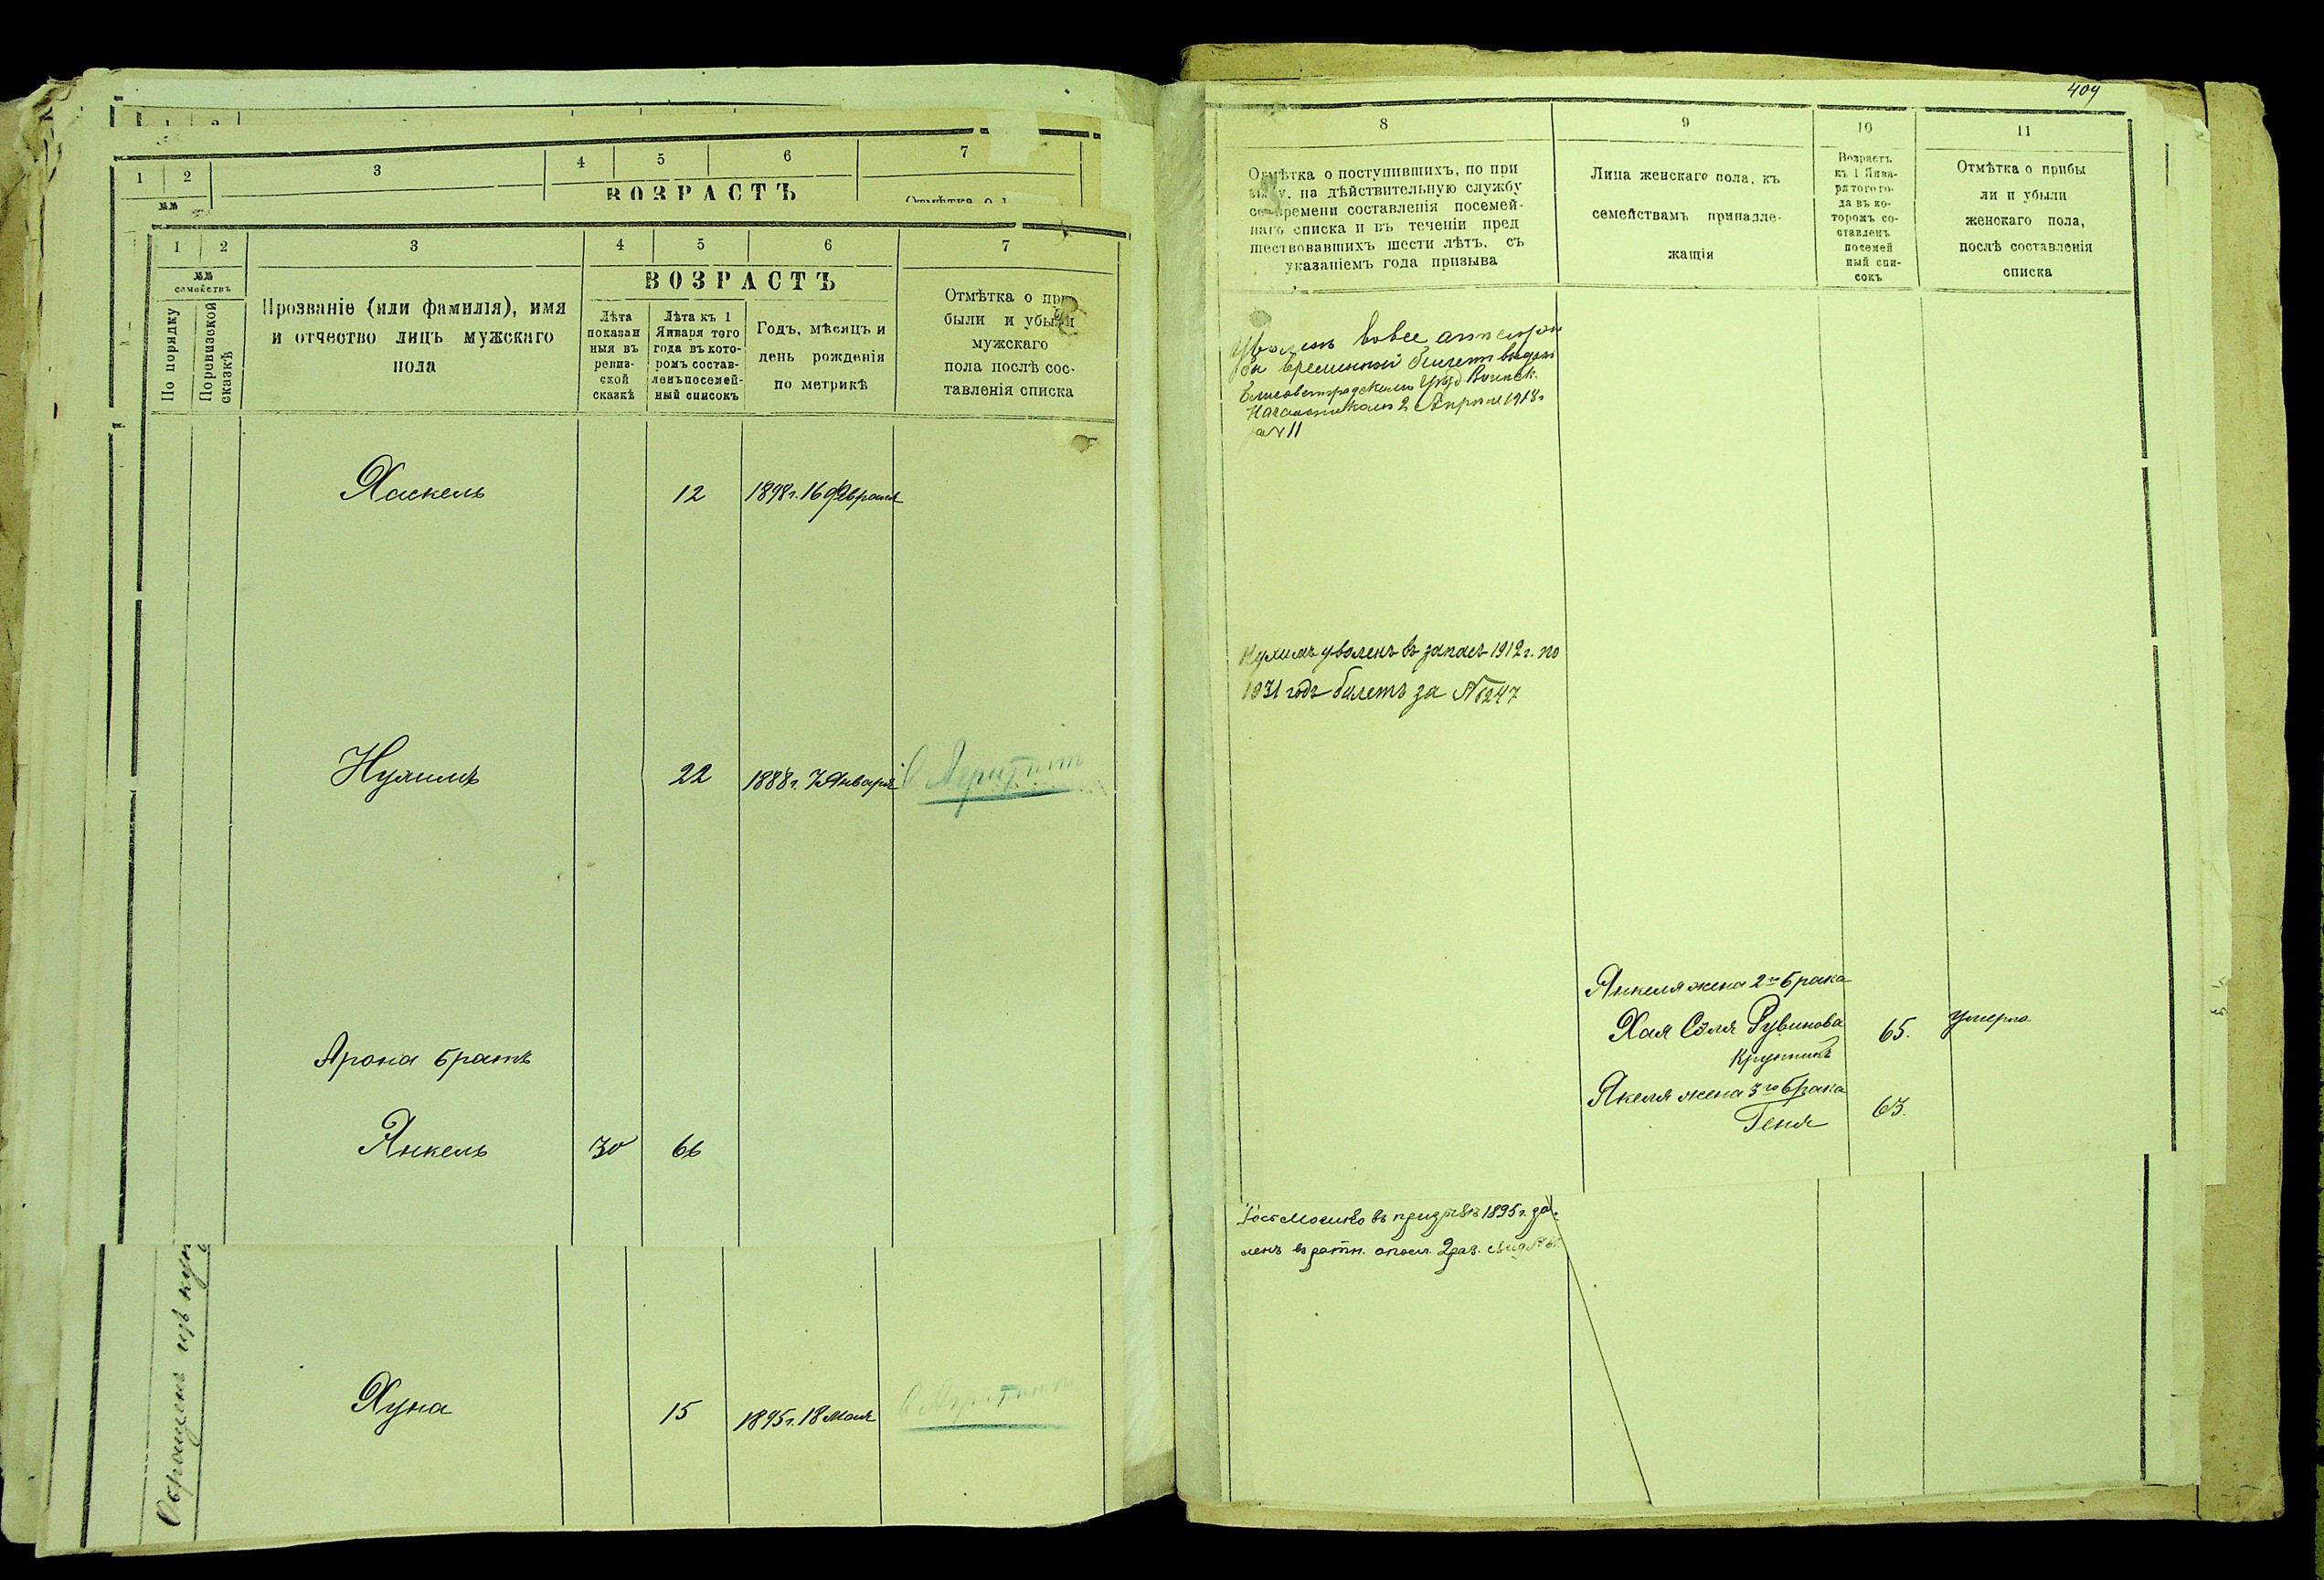 1 2 3 4 5 6 7
№№ ВОЗРАСТЪ
1 2 3 4 5 6 7
№№ семействъ
По порядку
По ревизской сказкѣ
Прозваніе (или фамилія), имя
и отчество лицъ мужскаго
пола
ВОЗРАСТЪ
Лѣта
показан
ныя въ
ревиз-
ской
сказкѣ
Лѣта къ 1
Января того
года въ кото-
ромъ состав-
ленъ посемей-
ный списокъ
Годъ, мѣсяцъ и
день рожденія
по метрикѣ
Отмѣтка о при
были и убыли
мужскаго
пола послѣ сос-
тавленія списка
Хаскель 12 1898 г. 16 Февраля
Нухимъ 22 1888 г. 7 Января
Арона братъ
Янкель 30 66
Хуна 15 1895 г. 18 Мая
409
8 9 10 11
Отмѣтка о поступившихъ, по при
зыву, на дѣйствительную службу
со времени составленія посемей-
наго списка и въ теченіи пред
шествовавшихъ шести лѣтъ, съ
указаніемъ года призыва
Лица женскаго пола, къ
семействамъ принадле-
жащія
Возрастъ
къ 1 Янва-
ря того го-
да въ ко-
торомъ со-
ставленъ
посемей
ный спи-
сокъ
Отмѣтка о прибы
ли и убыли
женскаго пола,
послѣ составленія
списка
Уволенъ вовсе
временной билетъ выданъ
Елисаветградскимъ Уѣзд Воинск.
Начальникомъ 2 Апрѣля 1918 г
за № 11
Нухимъ уволенъ въ запасъ 1912 г. по
1931 годъ билетъ за № 247
Янкеля жена 2го брака
Хая Сѣля Рувинова 65. умерла
Крупникъ
Якеля жена 3го брака
Геня 63.
въ призывѣ 1895 г. за
ленъ въ ратн. опол. 2 раз.